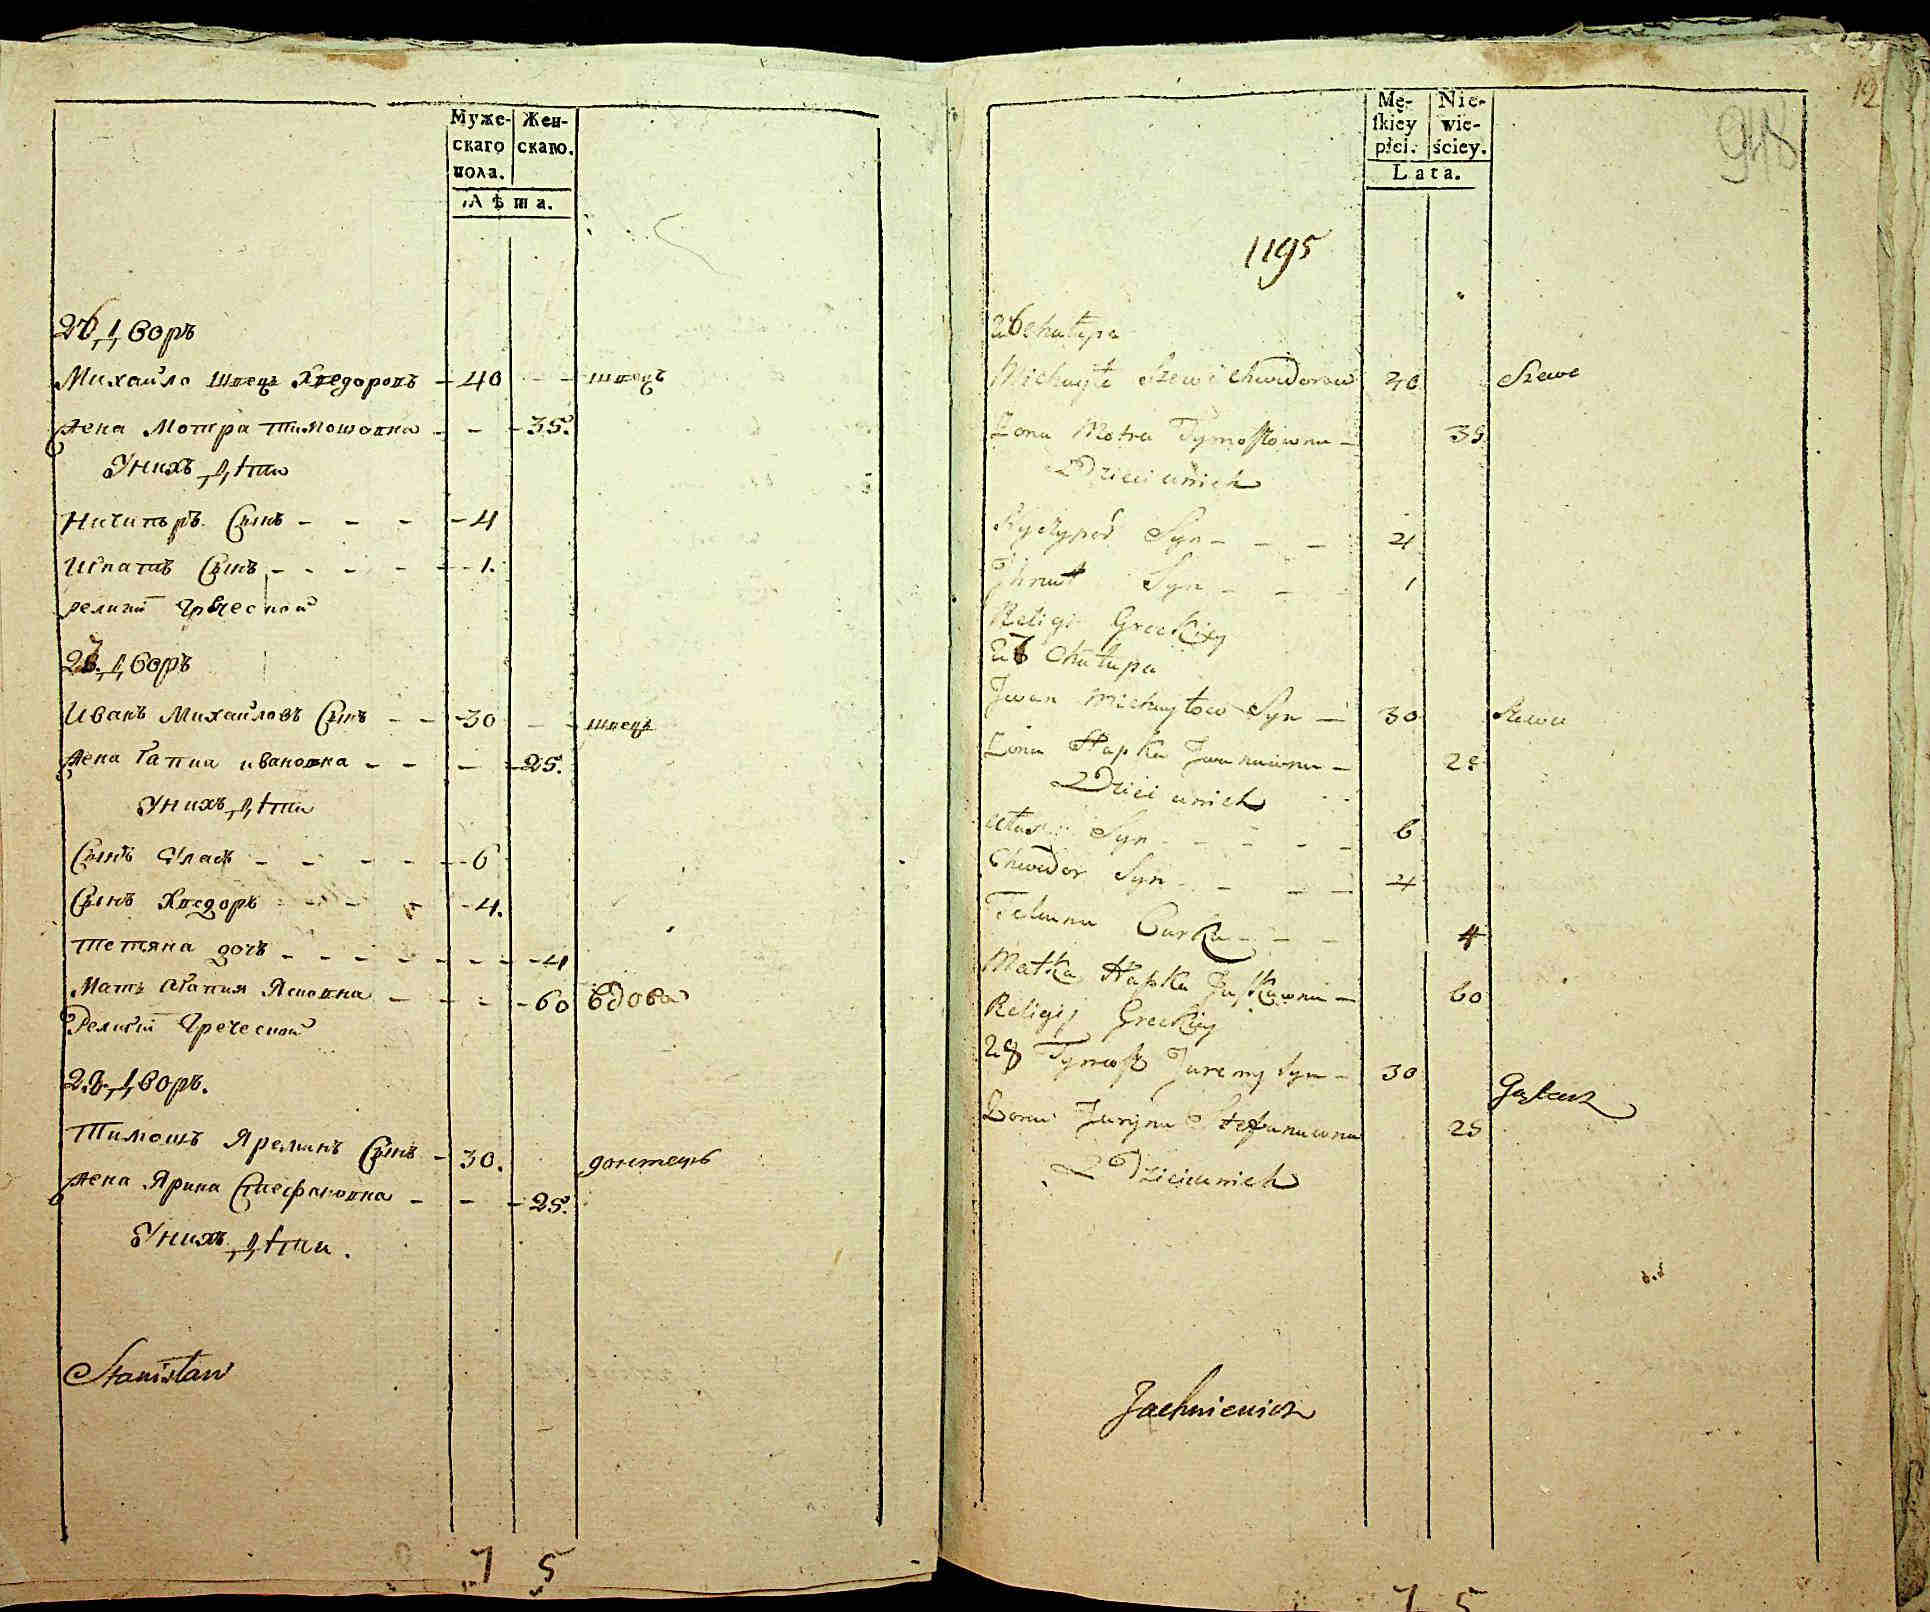 Муже-
скаго
пола.
Жен-
скаго.
Лѣта.
26 Дворъ
Михайло Швецъ Хведоровъ - 40 - - швецъ
Жена Мотра Тимошовна - - - 35.
У нихъ Дѣти
Ничипъръ Сынъ - - - - 4
Игнатъ Сынъ - - - - - 1.
религiи Греческой
27. Дворъ
Иванъ Михайловъ Сынъ - - 30 - - швецъ
Жена Гапка ивановна - - - 25.
У нихъ Дѣти
Сынъ Влас - - - - - 6
Сынъ Хведоръ - - - - 4.
Тетяна дочъ - - - - - - - 4
Мать Агапия Ясковна - - - - 60 вдова
Религiи Греческой
28. Дворъ.
Тимошъ Яреминъ Сынъ - 30.
Жена Ярина Стефановна - - - 25.
У нихъ Дѣти.
Stanisław
7 5
12
948
Mę-
ſkiey
płci.
Nie-
wie-
ściey.
Lata.
1195
26 chałupa
Michayło Szewc Chwedorow 40 Szewc
Żona Motra Tymoszowna - 35
Dzieci u nich
Nyczypor Syn - - - 4
Ihnat Syn - - - 1
Religi Greckiey
27 Chałupa
Jwan Michayłow Syn - 30 Szewc
Żona Hapka Jwanowna - 25
Dzieci u nich
Syn - - - - - 6
Chwedor Syn - - - - 4
Tetiana Curka - - - 4
Matka Hapka Jaskowna - 60
Religij Greckiey
28 Tymosz Jaremy Syn - 30
Żona Jaryna Stefanowna 25
Dzieci u nich
Jachniewicz
7 5